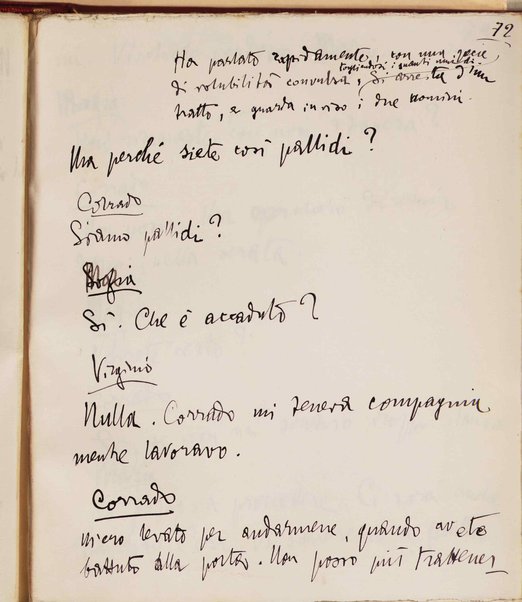 72
Ha parlato rapidamente, con una specie
togliendosi i guanti umidi.
di volubilità convulsa. Si arresta d'un
tratto, e guarda in viso i due uomini.
Ma perché siete così pallidi?
Corrado
Siamo pallidi?
Sì. Che è accaduto?
Virginio
Nulla. Corrado mi teneva compagnia
mentre lavoravo.
Corrado
M'ero levato per andarmene, quando avete
battuto alla porta. Non posso più trattener